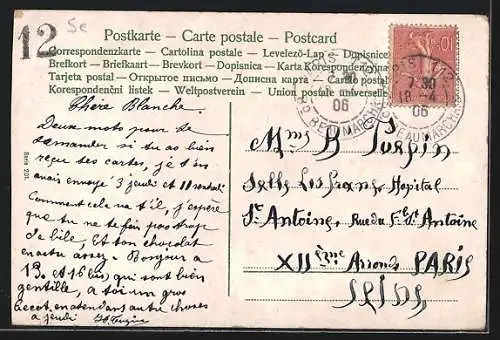 12
5e
Postkarte - Carte postale - Postcard
Correspondenzkarte - Cartolina postale - Levelező-Lap - Dopisnice
Brefkort - Briefkaart - Brevkort - Dopisnica - Karta Korespondencyjna
Tarjeta postal - Открытое письмо - Дописна карта - Cartão postal
Korespondenční listek - Weltpostverein - Union postale universelle
Chère Blanche.
Deux mots pour te
demander si tu as bien
reçue tes cartes, je t'en
avais envoyé 3 jeudi et 11
Comment cela va t'il, j'espère
que tu ne te fais pas trop
de bile, et ton chocolat
en as tu assez. Bonjour a
13e et 16 qui sont bien
gentille, a toi un gros
becot en attendant autre choses
a jeudi
Serie 221.
PARIS
7 30
06
Bd BEAUMARCHAIS
PARIS
7 30
18 -4
06
Bd BEAUMARCHAIS
10
Mme B
Salle Hopital
St Antoine, Rue du Fg St Antoine
XII ème Arrond. PARIS
SEINE